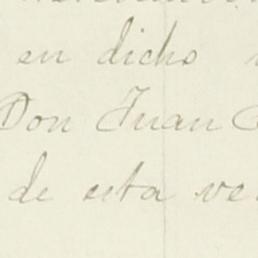 en dicho
Don Juan
de esta ve